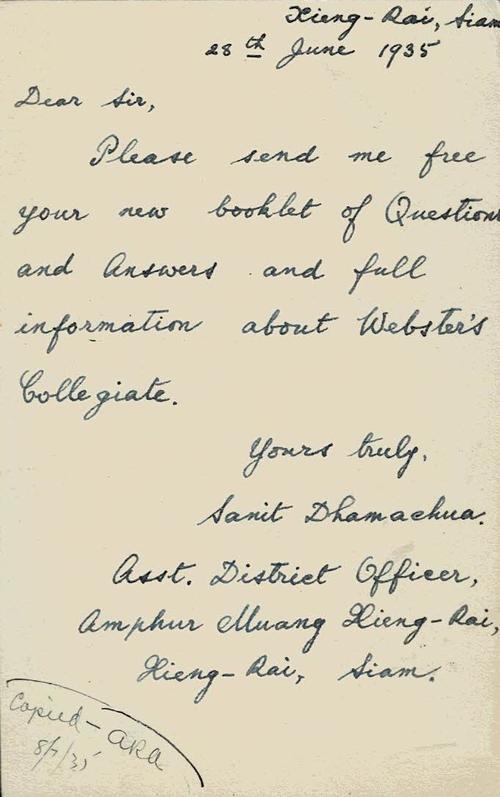 Xieng-Rai, Siam
28th June 1935
Dear Sir,
Please send me free
your new booklet of Questions
and Answers and full
information about Webster's
Collegiate.
Yours truly,
Sanit Dhamachua.
Asst. District Officer,
Amphur Muang Xieng-Rai,
Xieng-Rai, Siam.
Copied - ARA
8/7/35